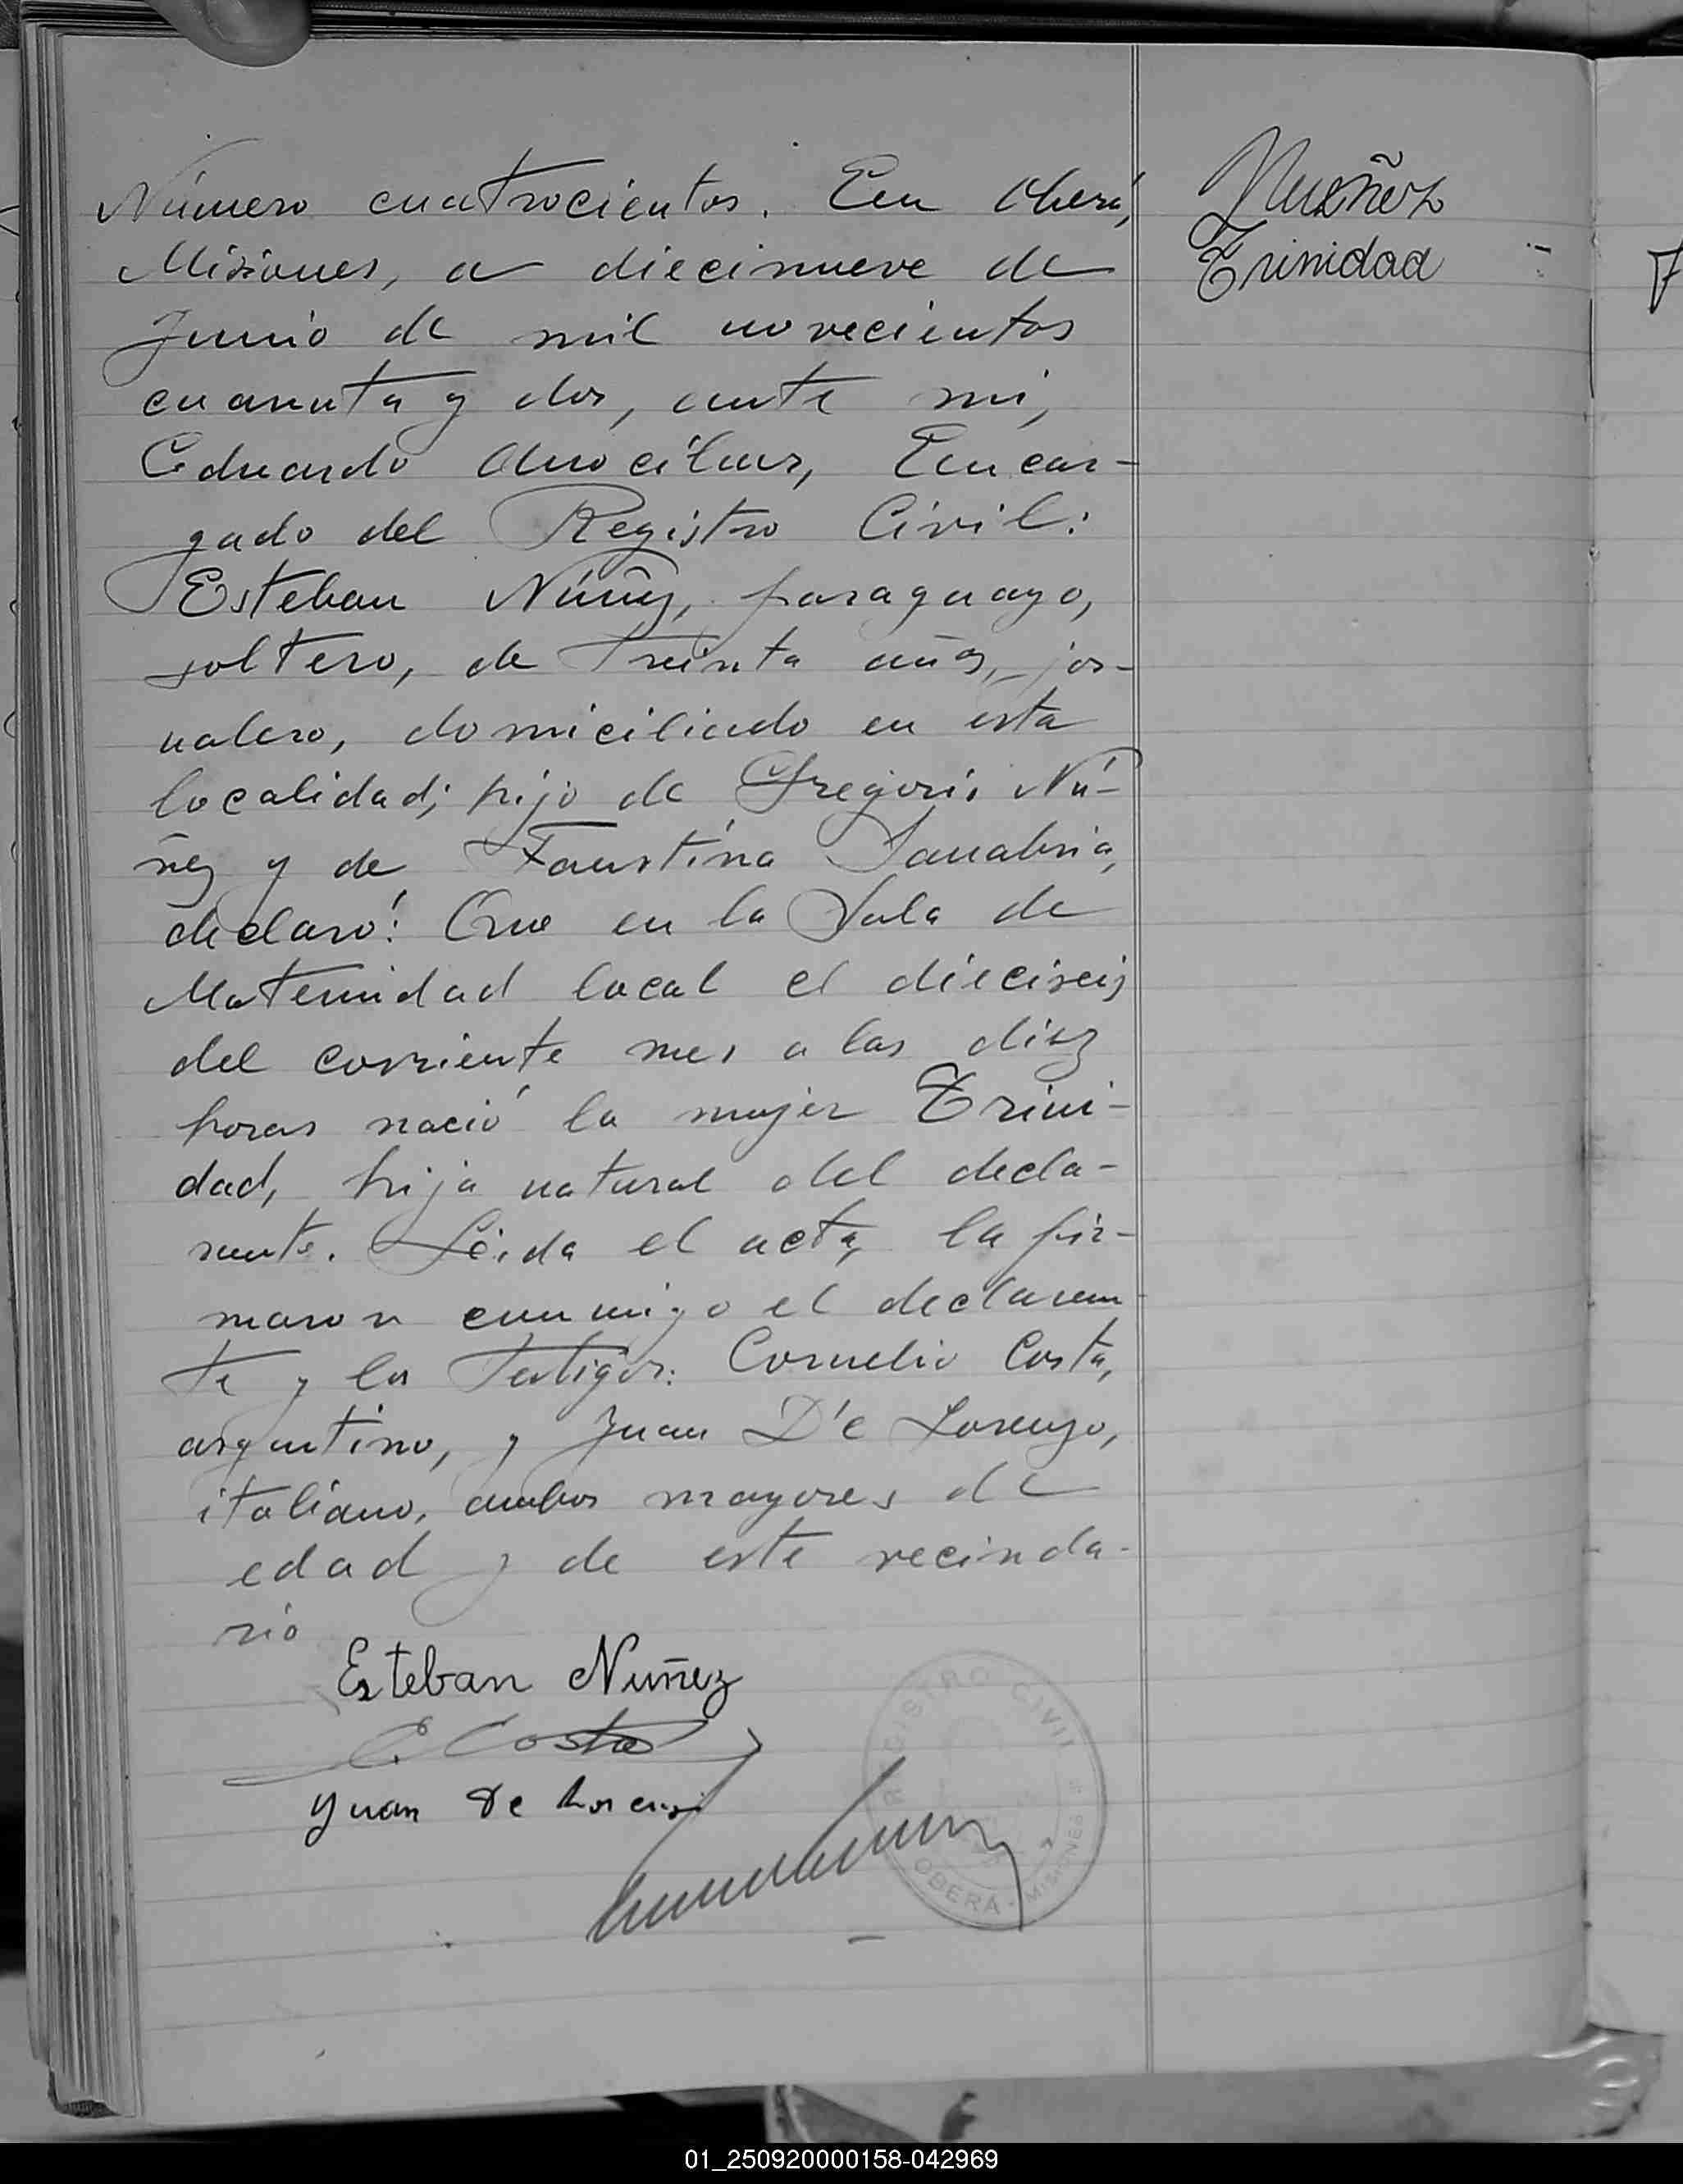 Número cuatrocientos. En Oberá,
Misiones, a diecinueve de
Junio de mil novecientos
cuarenta y dos, ante mi,
Eduardo Encar-
gado del Registro Civil:
Esteban Núñez, paraguayo,
soltero, de treinta años, jor-
nalero, domiciliado en esta
localidad; hijo de Gregorio Nú-
ñez y de Faustina Sanabria,
declaró: Que en la Sala de
Maternidad local el dieciseis
del corriente mes a las diez
horas nació la mujer Trini-
dad, hija natural del decla-
rante. Leída el acta, la fir-
maron conmigo el declaran
te y los testigos: Cornelio Costa,
argentino, y Juan D'e Lorenzo,
italiano, ambos mayores de
edad y de este vecinda-
rio
Esteban Nuñez
C. Costa
Juan De Lorenzo
REGISTRO CIVIL
OBERÁ - MISIONES
Nuñez
Trinidad
01_250920000158-042969